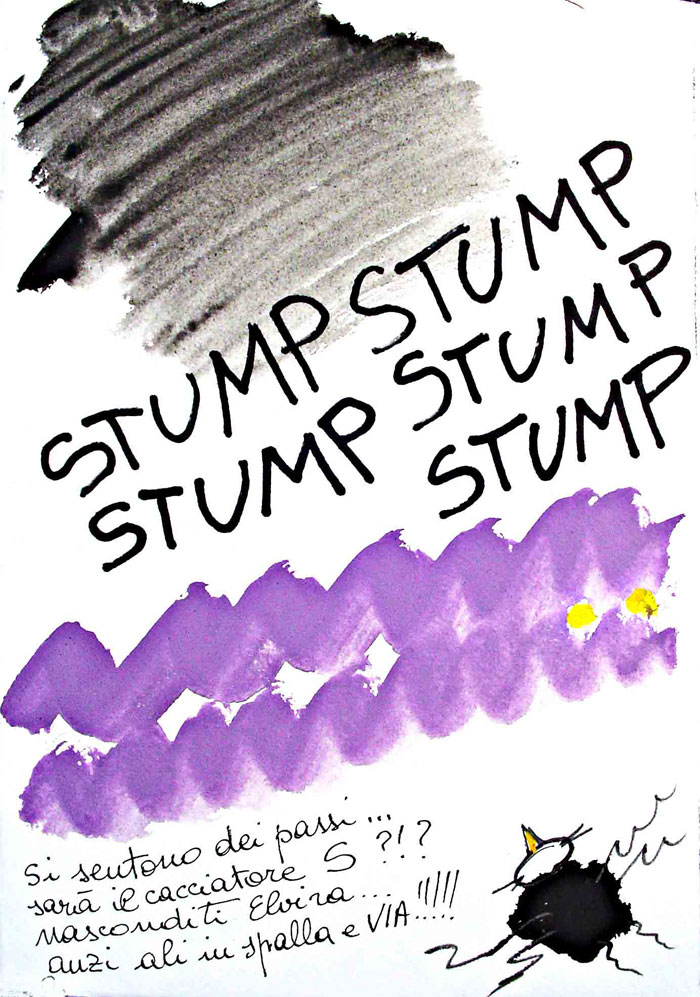 STUMP STUMP
STUMP STUMP
STUMP
Si sentono dei passi...
sarà il cacciatore S ?!?
nasconditi Elvira... !!!!!
anzi ali in spalla e VIA!!!!!